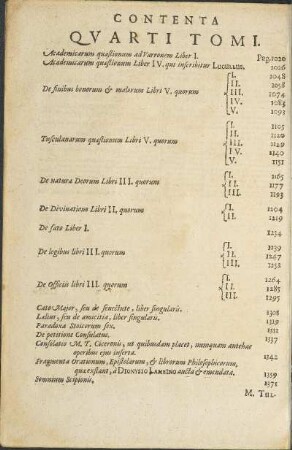 CONTENTA
QVARTI TOMI.
Academicarum quæstionum ad Varronem Liber I. Pag. 1020
Academicarum quæstionum Liber IV. qui inscribitur LUCULLUS. 1026
De finibus bonorum & malorum Libri V. quorum
I. 1048
II. 1058
III. 1074
IV. 1083
V. 1093
Tusculanarum quæstionum Libri V. quorum
I. 1105
II. 1120
III. 1129
IV. 1140
V. 1151
De natura Deorum Libri III. quorum
I. 1165
II. 1177
III. 1193
De Divinatione Libri II, quorum
I. 1204
II. 1219
De fato Liber I. 1234
De legibus libri III. quorum
I. 1239
II. 1247
III. 1258
De Officiis libri III. quorum
I. 1264
II. 1285
III. 1295
Cato Major, seu de senectute, liber singularis. 1308
Lælius, seu de amicitia, liber singularis. 1319
Paradoxa Stoicorum sex.
De petitione Consulatus. 1337
Consolatio M. T. Ciceronis, ut quibusdam placet, nunquam antehac
operibus ejus inserta. 1342
Fragmenta Orationum, Epistolarum, & librorum Philosophicorum,
quæ extant, à DIONYSIO LAMBINO aucta & emendata. 1359
Somnium Scipionis, 1371
M. TUL-